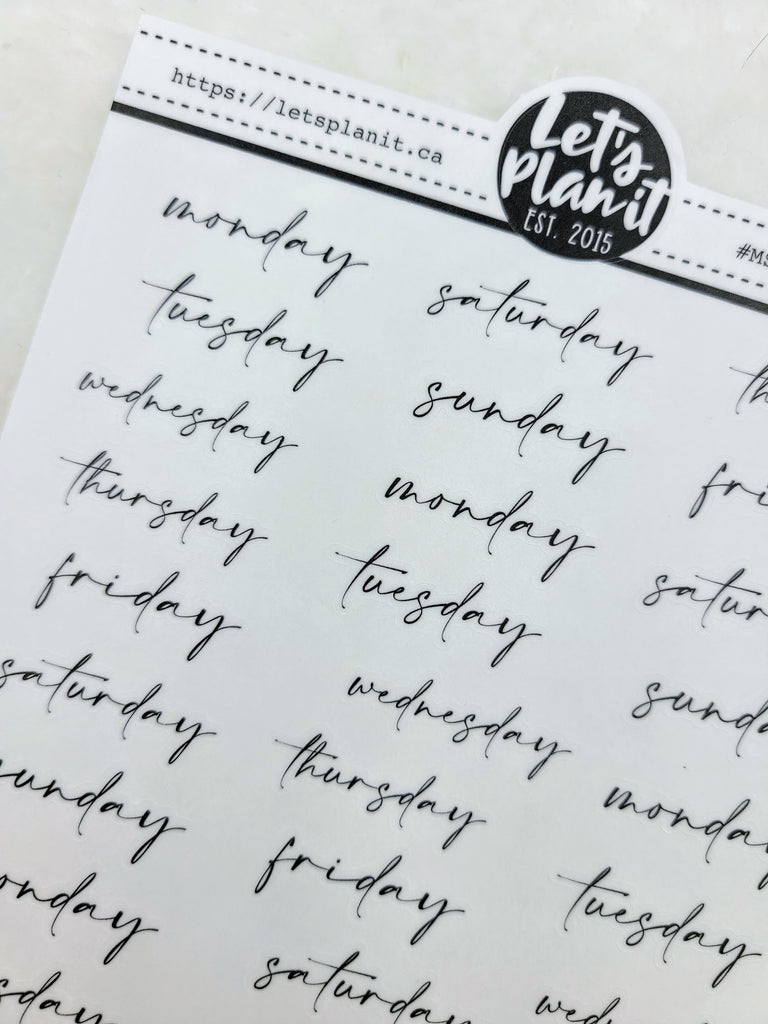 https://letsplanit.ca
Let's
Planit
EST. 2015
#MS
monday
tuesday
wednesday
thursday
friday
saturday
sunday
monday
saturday
sunday
monday
tuesday
wednesday
thursday
friday
saturday
th
fri
satur
sunda
monday
tuesday
wed